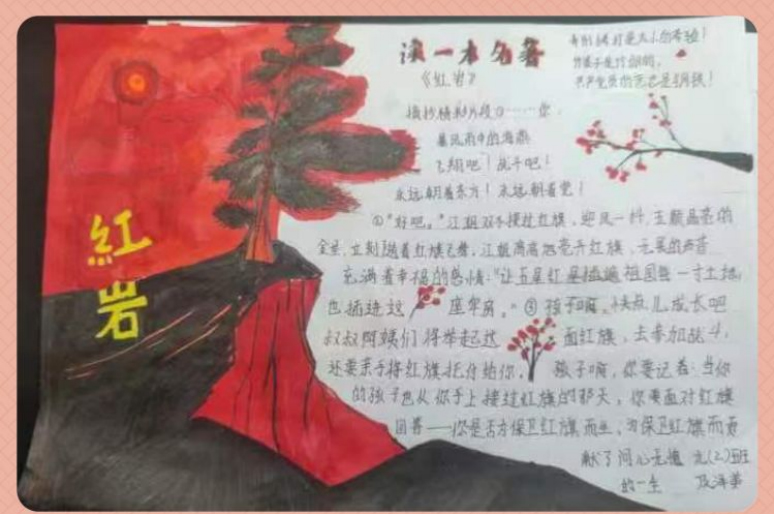 紅岩
读一本名著
《红岩》
竹签子是竹做的,
共产党员的意志是钢铁!
摘抄精彩片段①——你,
暴风雨中的海燕
飞翔吧!战斗吧!
永远朝着东方!永远朝着党!
①“好吧。”江姐双手接过红旗,迎风一抖,五颗晶亮的
金星,立刻随着红旗飞舞。江姐高高地亮开红旗,无畏的声音
充满着幸福的感情:“让五星红星插遍祖国每一寸土地,
也插进这座牢房。”③孩子啊,快点儿成长吧
叔叔阿姨们将举起这面红旗,去参加战斗,
还要亲手将红旗托付给你。孩子啊,你要记着:当你
的孩子也从你手上接过红旗的那天,你要面对红旗
回答——你是否为保卫红旗而生,为保卫红旗而贡
献了问心无愧 九(2)班
的一生